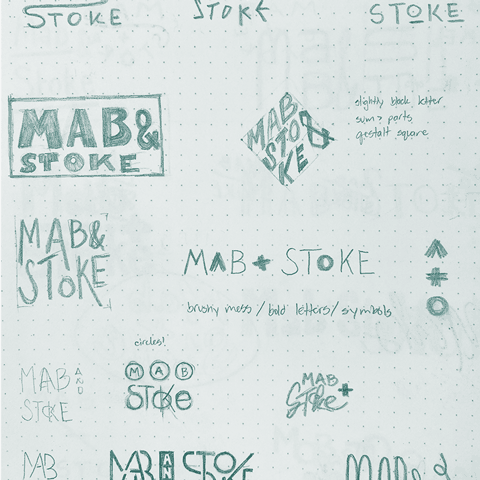 STOKE
STOKE
STOKE
MAB&
STOKE
MAB
STO&
KE
slightly black letter
sum > parts
gestalt square
MAB&
STOKE
MAB + STOKE
brushy mess / bold letters / symbols
circles!
MAB AND
STOKE
MAB
STOKE
MAB
Stoke +
MAB
MAB AN STOKE